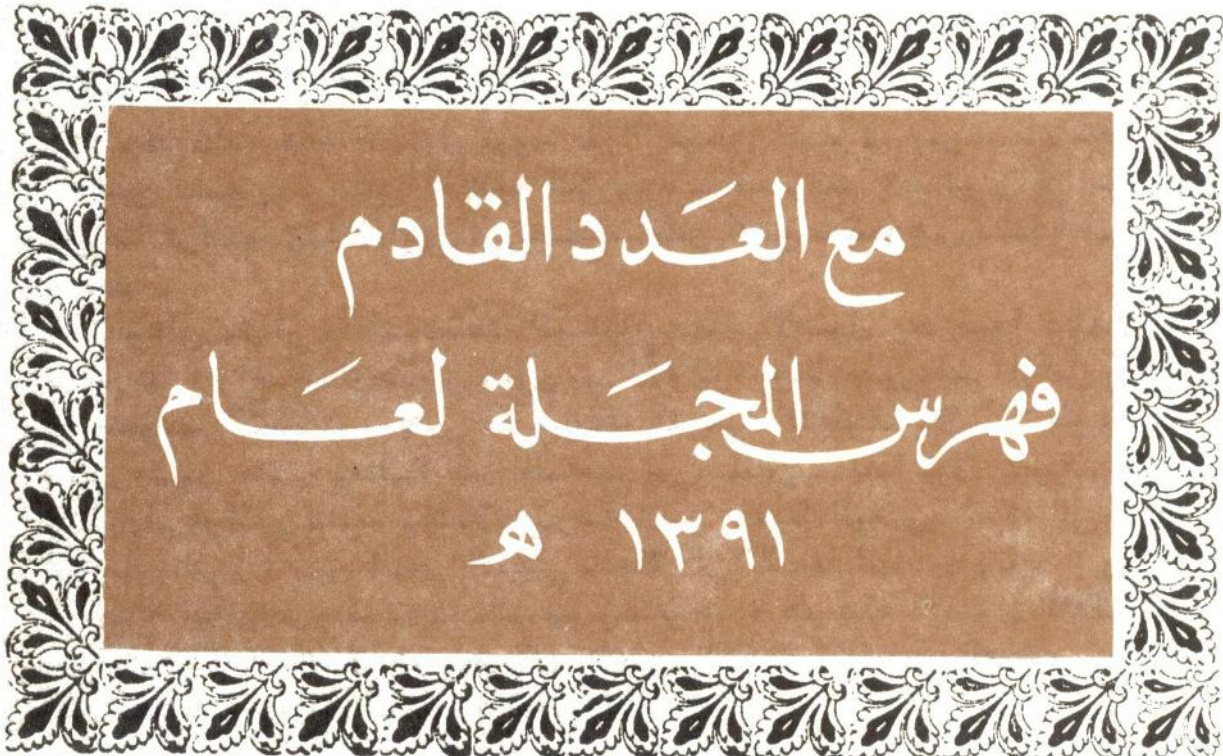 مع العَدد القادم
فهرس المجَلة لعَام
١٣٩١ هـ